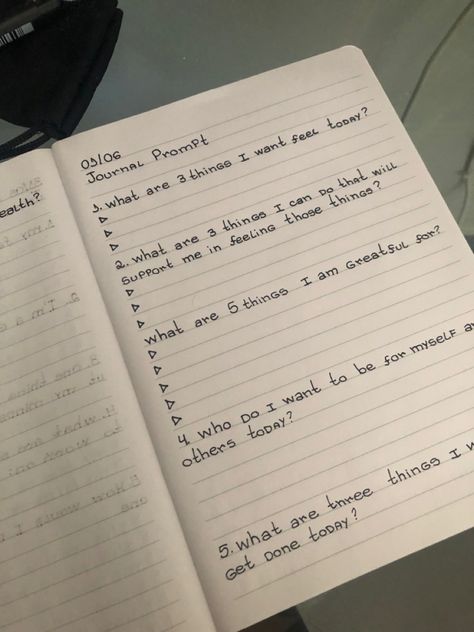 ealth?
03/06
Journal Prompt
1. What are 3 things I want feel today?
2. What are 3 things I can do that will
support me in feeling those things?
What are 5 things I am greatful for?
4. Who do I want to be for myself a
others today?
5. What are three things I w
get done today?